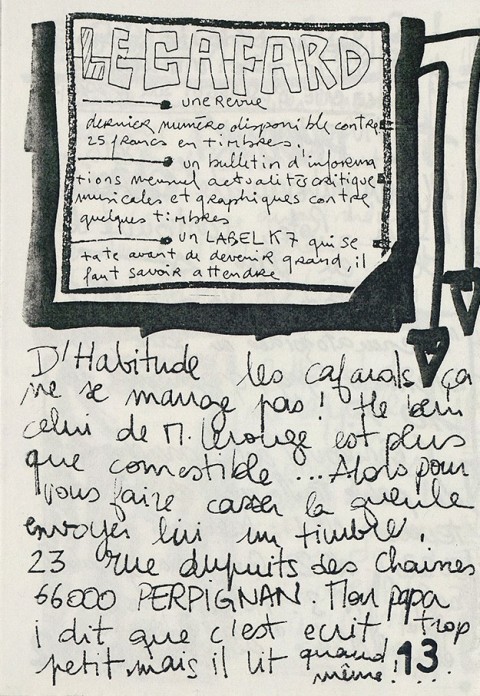 LE CAFARD
une Revue
dernier numéro disponible contre
25 francs en timbres.
un bulletin d'informa
tions mensuel actualités critique
musicales et graphiques contre
quelques timbres
un LABEL K7 qui se
tate avant de devenir grand, il
faut savoir attendre
D'Habitude les cafards ça
ne se mange pas ! He bein
celui de M. Lerouge est plus
que comestible ... Alors pour
vous faire casser la gueule
envoyer lui un timbre.
23 rue du puits des chaines
66000 PERPIGNAN. Mon papa
i dit que c'est ecrit trop
petit mais il lit quand
même !...
13